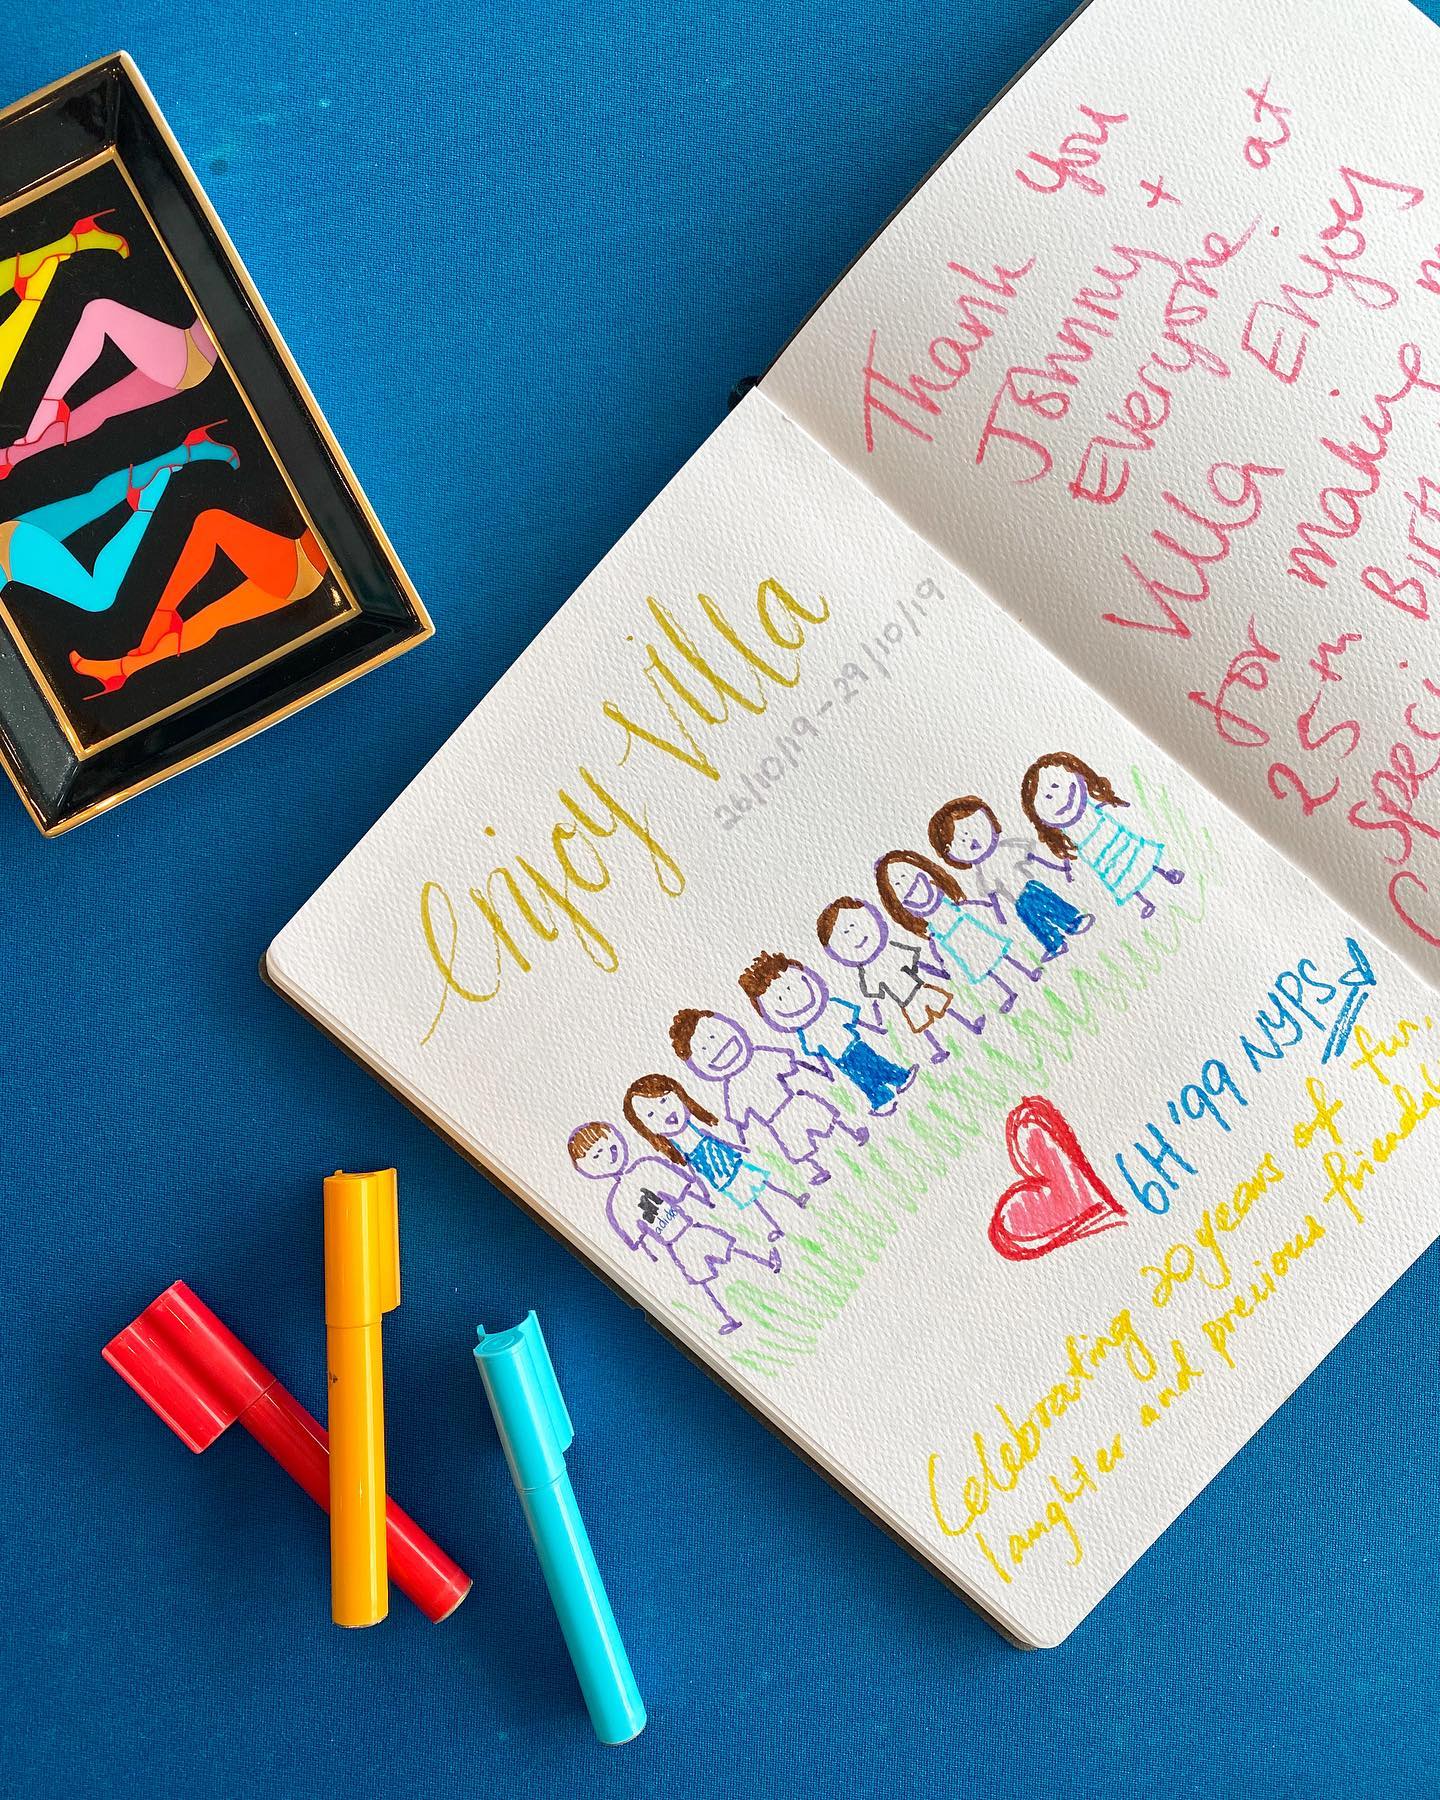 Enjoy Villa
26/10/19-29/10/19
adidas
6H '99 NYPS
Celebrating 20 years of fun,
laughter and precious
Thank You
Johnny +
Everyone at
Villa Enjoy
for making
25th